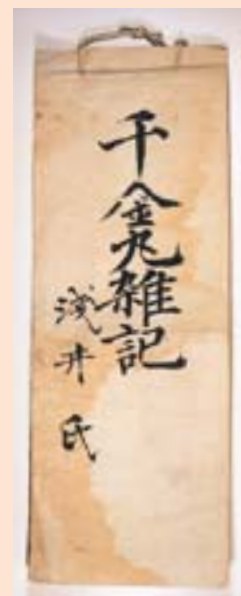 千金丸雑記
浅井氏